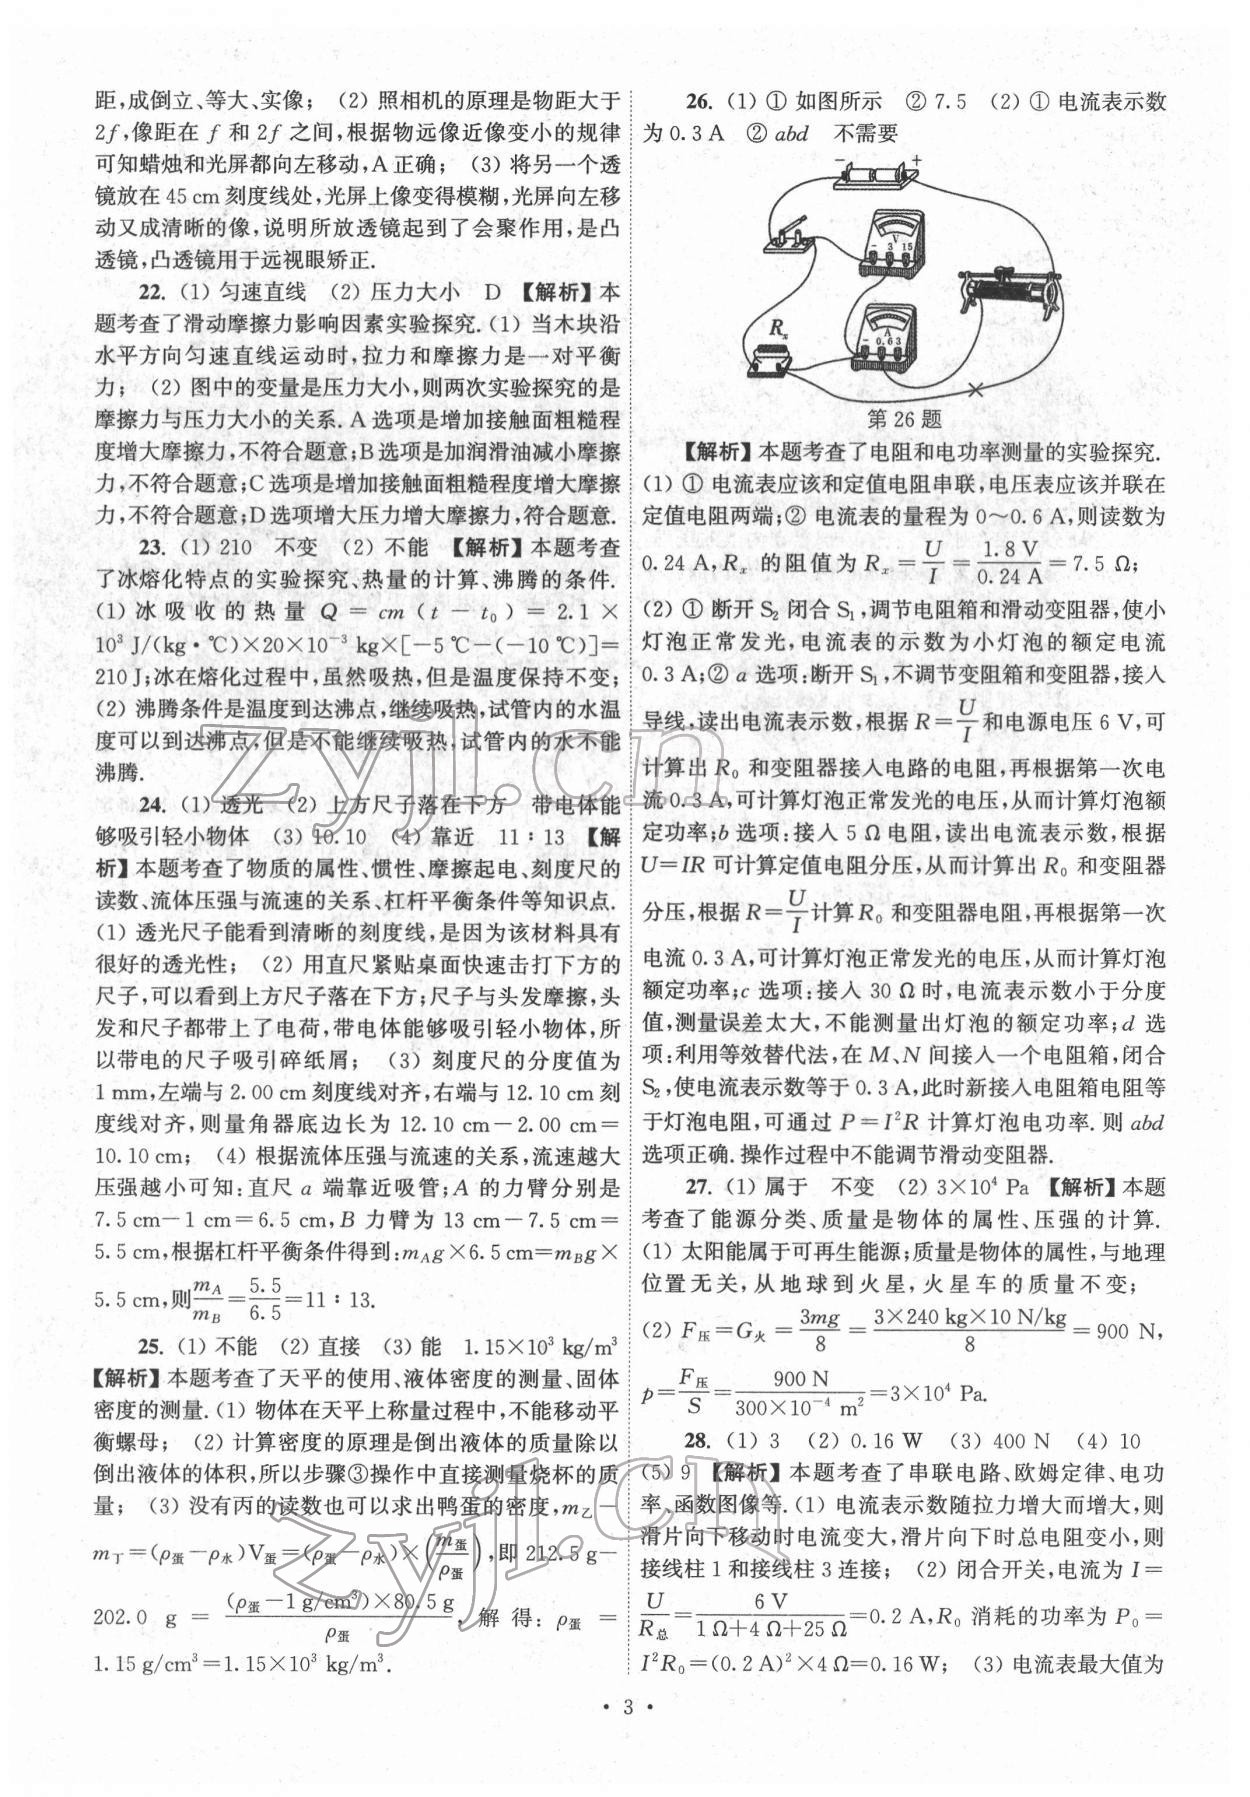 距,成倒立、等大、实像; (2) 照相机的原理是物距大于
2f,像距在 f 和 2f 之间,根据物远像近像变小的规律
可知蜡烛和光屏都向左移动,A 正确; (3) 将另一个透
镜放在 45 cm 刻度线处,光屏上像变得模糊,光屏向左移
动又成清晰的像,说明所放透镜起到了会聚作用,是凸
透镜,凸透镜用于远视眼矫正.
22. (1) 匀速直线 (2) 压力大小 D 【解析】本
题考查了滑动摩擦力影响因素实验探究.(1) 当木块沿
水平方向匀速直线运动时,拉力和摩擦力是一对平衡
力; (2) 图中的变量是压力大小,则两次实验探究的是
摩擦力与压力大小的关系. A 选项是增加接触面粗糙程
度增大摩擦力,不符合题意;B 选项是加润滑油减小摩擦
力,不符合题意;C 选项是增加接触面粗糙程度增大摩擦
力,不符合题意;D 选项增大压力增大摩擦力,符合题意.
23. (1) 210 不变 (2) 不能 【解析】本题考查
了冰熔化特点的实验探究、热量的计算、沸腾的条件.
(1) 冰吸收的热量 Q = cm ( t − t₀ ) = 2.1 ×
10³ J/(kg·℃)×20×10⁻³ kg×[−5 ℃−(−10 ℃)]=
210 J;冰在熔化过程中,虽然吸热,但是温度保持不变;
(2) 沸腾条件是温度到达沸点,继续吸热,试管内的水温
度可以到达沸点,但是不能继续吸热,试管内的水不能
沸腾.
24. (1) 透光 (2) 上方尺子落在下方 带电体能
够吸引轻小物体 (3) 10.10 (4) 靠近 11∶13 【解
析】本题考查了物质的属性、惯性、摩擦起电、刻度尺的
读数、流体压强与流速的关系、杠杆平衡条件等知识点.
(1) 透光尺子能看到清晰的刻度线,是因为该材料具有
很好的透光性; (2) 用直尺紧贴桌面快速击打下方的
尺子,可以看到上方尺子落在下方;尺子与头发摩擦,头
发和尺子都带上了电荷,带电体能够吸引轻小物体,所
以带电的尺子吸引碎纸屑; (3) 刻度尺的分度值为
1 mm,左端与 2.00 cm 刻度线对齐,右端与 12.10 cm 刻
度线对齐,则量角器底边长为 12.10 cm−2.00 cm=
10.10 cm; (4) 根据流体压强与流速的关系,流速越大
压强越小可知:直尺 a 端靠近吸管;A 的力臂分别是
7.5 cm−1 cm=6.5 cm,B 力臂为 13 cm−7.5 cm=
5.5 cm,根据杠杆平衡条件得到:m_A g×6.5 cm=m_B g×
5.5 cm,则 m_A/m_B=5.5/6.5=11∶13.
25. (1) 不能 (2) 直接 (3) 能 1.15×10³ kg/m³
【解析】本题考查了天平的使用、液体密度的测量、固体
密度的测量.(1) 物体在天平上称量过程中,不能移动平
衡螺母; (2) 计算密度的原理是倒出液体的质量除以
倒出液体的体积,所以步骤③操作中直接测量烧杯的质
量; (3) 没有丙的读数也可以求出鸭蛋的密度,m乙−
m丁=(ρ蛋−ρ水)V蛋=(ρ蛋−ρ水)×(m蛋/ρ蛋),即 212.5 g−
202.0 g = (ρ蛋−1 g/cm³)×80.5 g/ρ蛋, 解得: ρ蛋 =
1.15 g/cm³=1.15×10³ kg/m³.
26. (1) ① 如图所示 ② 7.5 (2) ① 电流表示数
为 0.3 A ② abd 不需要
− +
V
− 3 15
A
− 0.6 3
Rₓ
第 26 题
【解析】本题考查了电阻和电功率测量的实验探究.
(1) ① 电流表应该和定值电阻串联,电压表应该并联在
定值电阻两端;② 电流表的量程为 0～0.6 A,则读数为
0.24 A,Rₓ 的阻值为 Rₓ=U/I=1.8 V/0.24 A=7.5 Ω;
(2) ① 断开 S₂ 闭合 S₁,调节电阻箱和滑动变阻器,使小
灯泡正常发光,电流表的示数为小灯泡的额定电流
0.3 A;② a 选项:断开 S₁,不调节变阻箱和变阻器,接入
导线,读出电流表示数,根据 R=U/I 和电源电压 6 V,可
计算出 R₀ 和变阻器接入电路的电阻,再根据第一次电
流 0.3 A,可计算灯泡正常发光的电压,从而计算灯泡额
定功率;b 选项:接入 5 Ω 电阻,读出电流表示数,根据
U=IR 可计算定值电阻分压,从而计算出 R₀ 和变阻器
分压,根据 R=U/I 计算 R₀ 和变阻器电阻,再根据第一次
电流 0.3 A,可计算灯泡正常发光的电压,从而计算灯泡
额定功率;c 选项:接入 30 Ω 时,电流表示数小于分度
值,测量误差太大,不能测量出灯泡的额定功率;d 选
项:利用等效替代法,在 M、N 间接入一个电阻箱,闭合
S₂,使电流表示数等于 0.3 A,此时新接入电阻箱电阻等
于灯泡电阻,可通过 P=I²R 计算灯泡电功率. 则 abd
选项正确. 操作过程中不能调节滑动变阻器.
27. (1) 属于 不变 (2) 3×10⁴ Pa 【解析】本题
考查了能源分类、质量是物体的属性、压强的计算.
(1) 太阳能属于可再生能源;质量是物体的属性,与地理
位置无关,从地球到火星,火星车的质量不变;
(2) F压=G火=3mg/8=3×240 kg×10 N/kg/8=900 N,
p=F压/S=900 N/300×10⁻⁴ m²=3×10⁴ Pa.
28. (1) 3 (2) 0.16 W (3) 400 N (4) 10
(5) 9 【解析】本题考查了串联电路、欧姆定律、电功
率、函数图像等.(1) 电流表示数随拉力增大而增大,则
滑片向下移动时电流变大,滑片向下时总电阻变小,则
接线柱 1 和接线柱 3 连接; (2) 闭合开关,电流为 I=
U/R总=6 V/1 Ω+4 Ω+25 Ω=0.2 A,R₀ 消耗的功率为 P₀=
I²R₀=(0.2 A)²×4 Ω=0.16 W; (3) 电流表最大值为
• 3 •
zyjl.cn
zyjl.cn